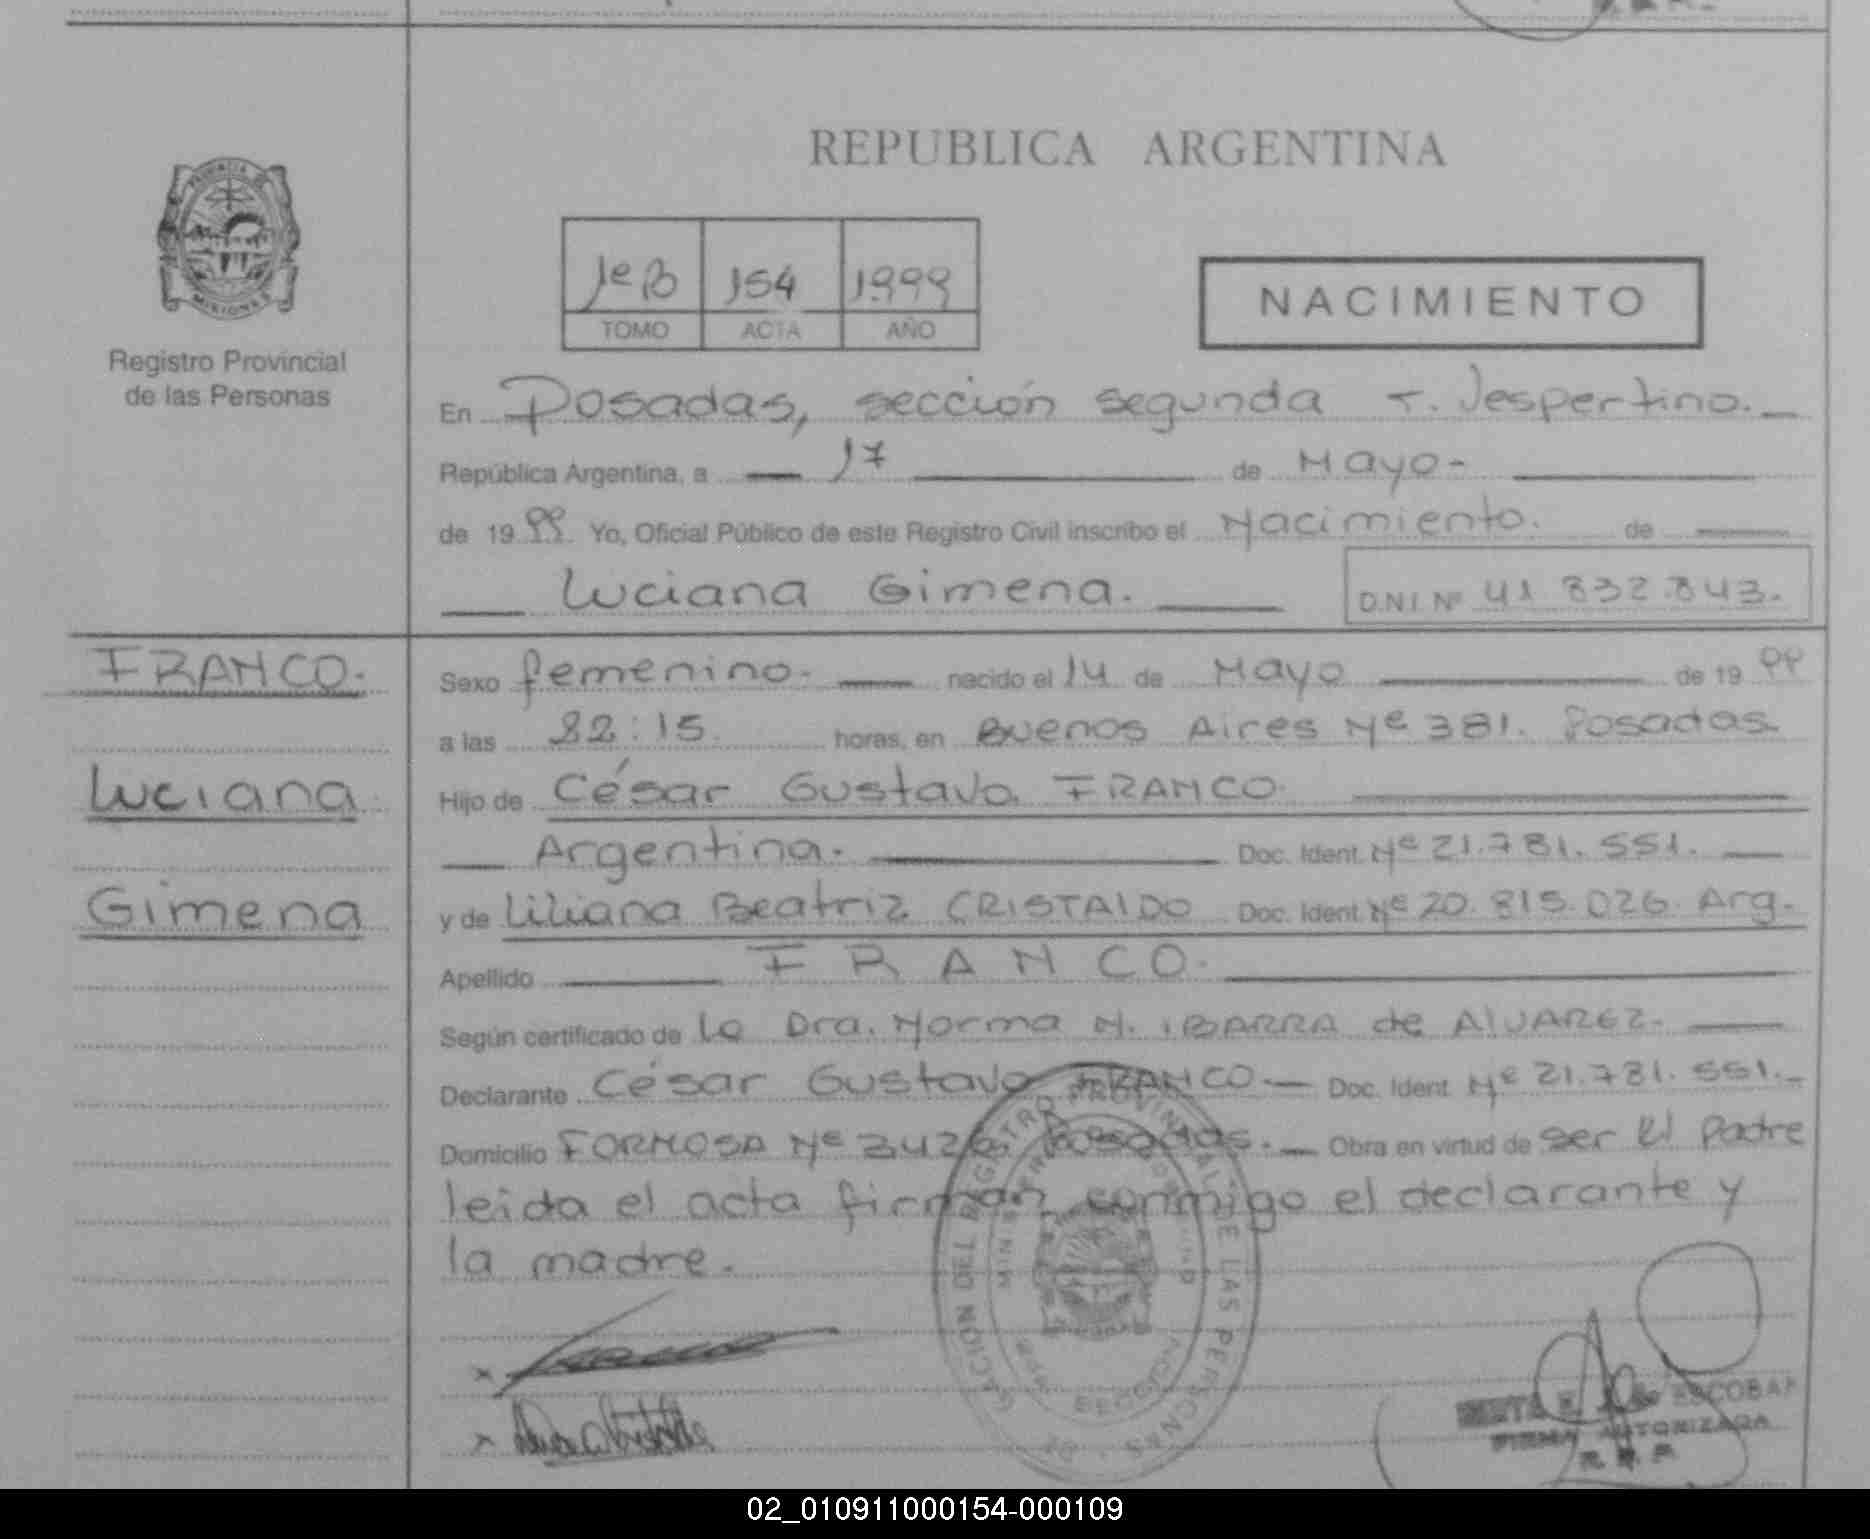 REPUBLICA ARGENTINA
PROVINCIA DE
MISIONES
Registro Provincial
de las Personas
1º B 154 1999
TOMO ACTA AÑO
NACIMIENTO
En Posadas, sección segunda T. Vespertino.
República Argentina, a 17 de Mayo-
de 1999 Yo, Oficial Público de este Registro Civil inscribo el Nacimiento. de
Luciana Gimena. D.N.I. Nº 41 832.843.
FRANCO.
Luciana
Gimena
Sexo femenino. nacido el 14 de Mayo de 1999
a las 22:15. horas, en Buenos Aires Nº 381. Posadas.
Hijo de César Gustavo FRANCO.
Argentina. Doc. Ident. Nº 21.781.551.
y de Liliana Beatriz CRISTALDO Doc. Ident. Nº 20.815.026. Arg.
Apellido FRANCO.
Según certificado de la Dra. Norma N. IBARRA de ALVAREZ.
Declarante César Gustavo FRANCO. Doc. Ident. Nº 21.781.551.
Domicilio FORMOSA Nº 3426 Posadas. Obra en virtud de ser el padre
leida el acta firman conmigo el declarante y
la madre.
ESCOBAR
FIRMA AUTORIZADA
R. P. P.
02_010911000154-000109